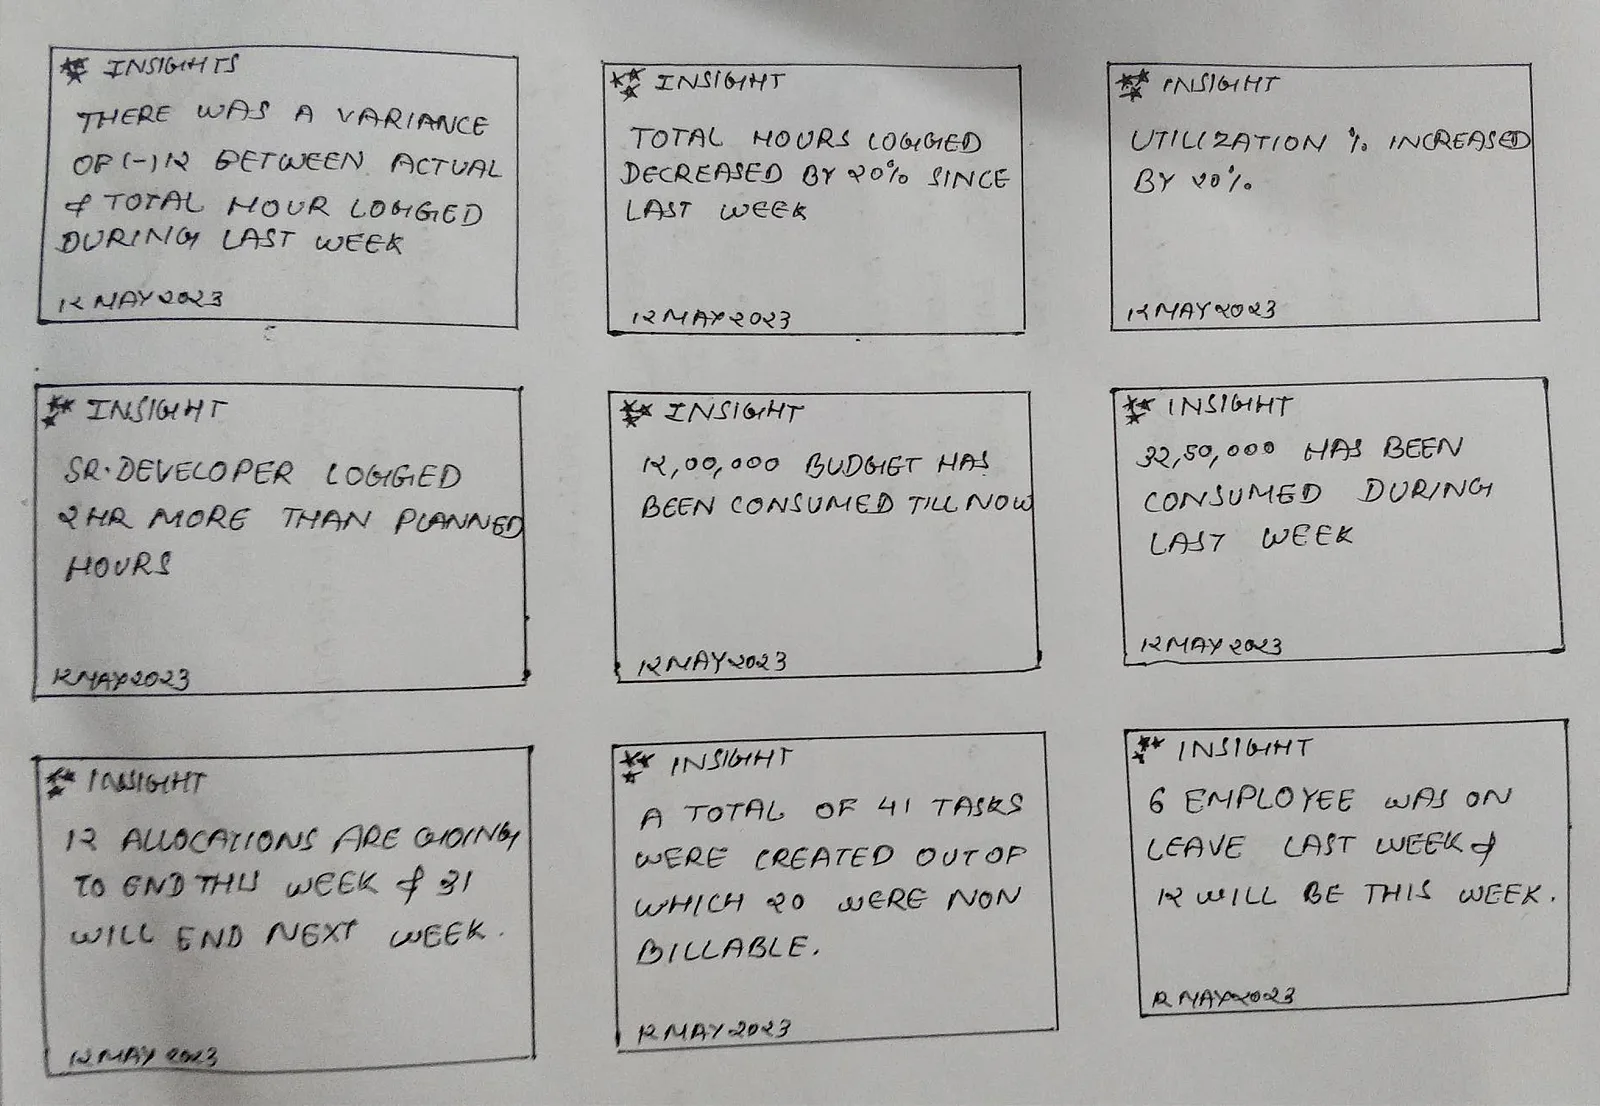 INSIGHTS
THERE WAS A VARIANCE
OF (-) 12 BETWEEN ACTUAL
& TOTAL HOUR LOGGED
DURING LAST WEEK
12 MAY 2023
INSIGHT
TOTAL HOURS LOGGED
DECREASED BY 20% SINCE
LAST WEEK
12 MAY 2023
INSIGHT
UTILIZATION % INCREASED
BY 20%
12 MAY 2023
INSIGHT
SR. DEVELOPER LOGGED
2 HR MORE THAN PLANNED
HOURS
12 MAY 2023
INSIGHT
12,00,000 BUDGET HAS
BEEN CONSUMED TILL NOW
12 MAY 2023
INSIGHT
32,50,000 HAS BEEN
CONSUMED DURING
LAST WEEK
12 MAY 2023
INSIGHT
12 ALLOCATIONS ARE GOING
TO END THIS WEEK & 31
WILL END NEXT WEEK.
12 MAY 2023
INSIGHT
A TOTAL OF 41 TASKS
WERE CREATED OUT OF
WHICH 20 WERE NON
BILLABLE.
12 MAY 2023
INSIGHT
6 EMPLOYEE WAS ON
LEAVE LAST WEEK &
12 WILL BE THIS WEEK.
12 MAY 2023